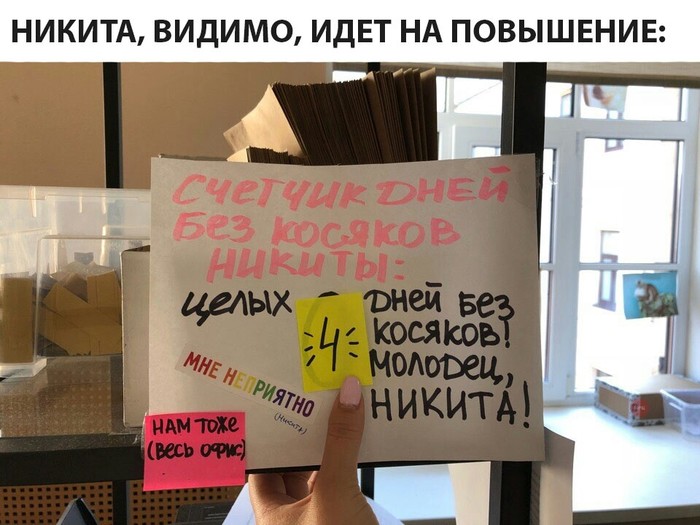 НИКИТА, ВИДИМО, ИДЕТ НА ПОВЫШЕНИЕ:
СЧЕТЧИК ДНЕЙ
БЕЗ КОСЯКОВ
НИКИТЫ:
целых 4 дней без
косяков!
молодец,
НИКИТА!
МНЕ НЕПРИЯТНО
(Никита)
НАМ ТОЖЕ
(весь офис)